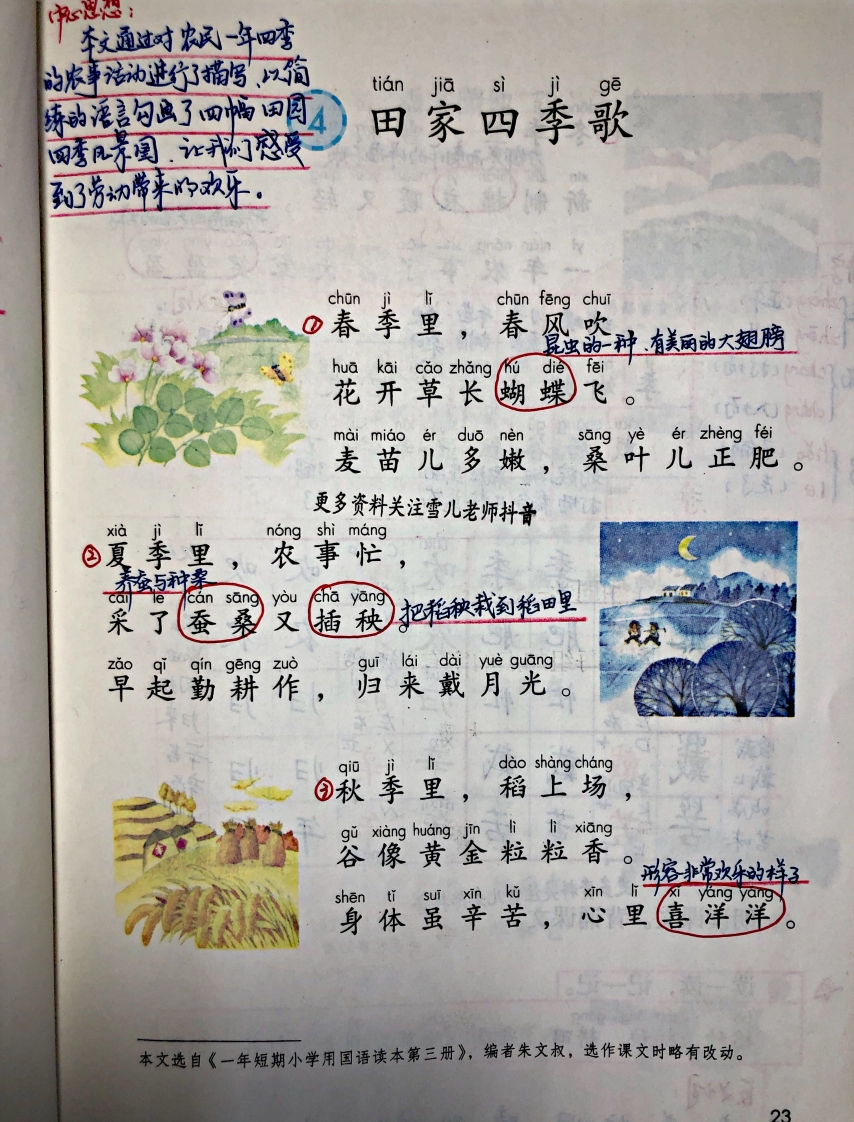 中心思想：
本文通过对农民一年四季
的农事活动进行了描写、以简
练的语言勾画了四幅田园
四季风景图、让我们感受
到了劳动带来的欢乐。
tián jiā sì jì gē
4 田家四季歌
chūn jì lǐ chūn fēng chuī
① 春季里，春风吹
昆虫的一种、有美丽的大翅膀
huā kāi cǎo zhǎng hú dié fēi
花开草长蝴蝶飞。
mài miáo ér duō nèn sāng yè ér zhèng féi
麦苗儿多嫩，桑叶儿正肥。
更多资料关注雪儿老师抖音
xià jì lǐ nóng shì máng
② 夏季里，农事忙，
养蚕与种桑
cǎi le cán sāng yòu chā yāng
采了蚕桑又插秧。
把稻秧栽到稻田里
zǎo qǐ qín gēng zuò guī lái dài yuè guāng
早起勤耕作，归来戴月光。
qiū jì lǐ dào shàng cháng
③ 秋季里，稻上场，
gǔ xiàng huáng jīn lì lì xiāng
谷像黄金粒粒香。
形容非常欢乐的样子
shēn tǐ suī xīn kǔ xīn lǐ xǐ yáng yáng
身体虽辛苦，心里喜洋洋。
本文选自《一年短期小学用国语读本第三册》，编者朱文叔，选作课文时略有改动。
23